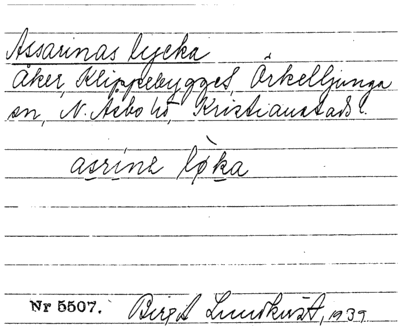 Assarinas lycka
åker, Klippebygget, Örkelljunga
sn, N. Åsbo hd, Kristianstads l.
asrinz løka
Nr 5507. Birgit Lundkvist, 1939